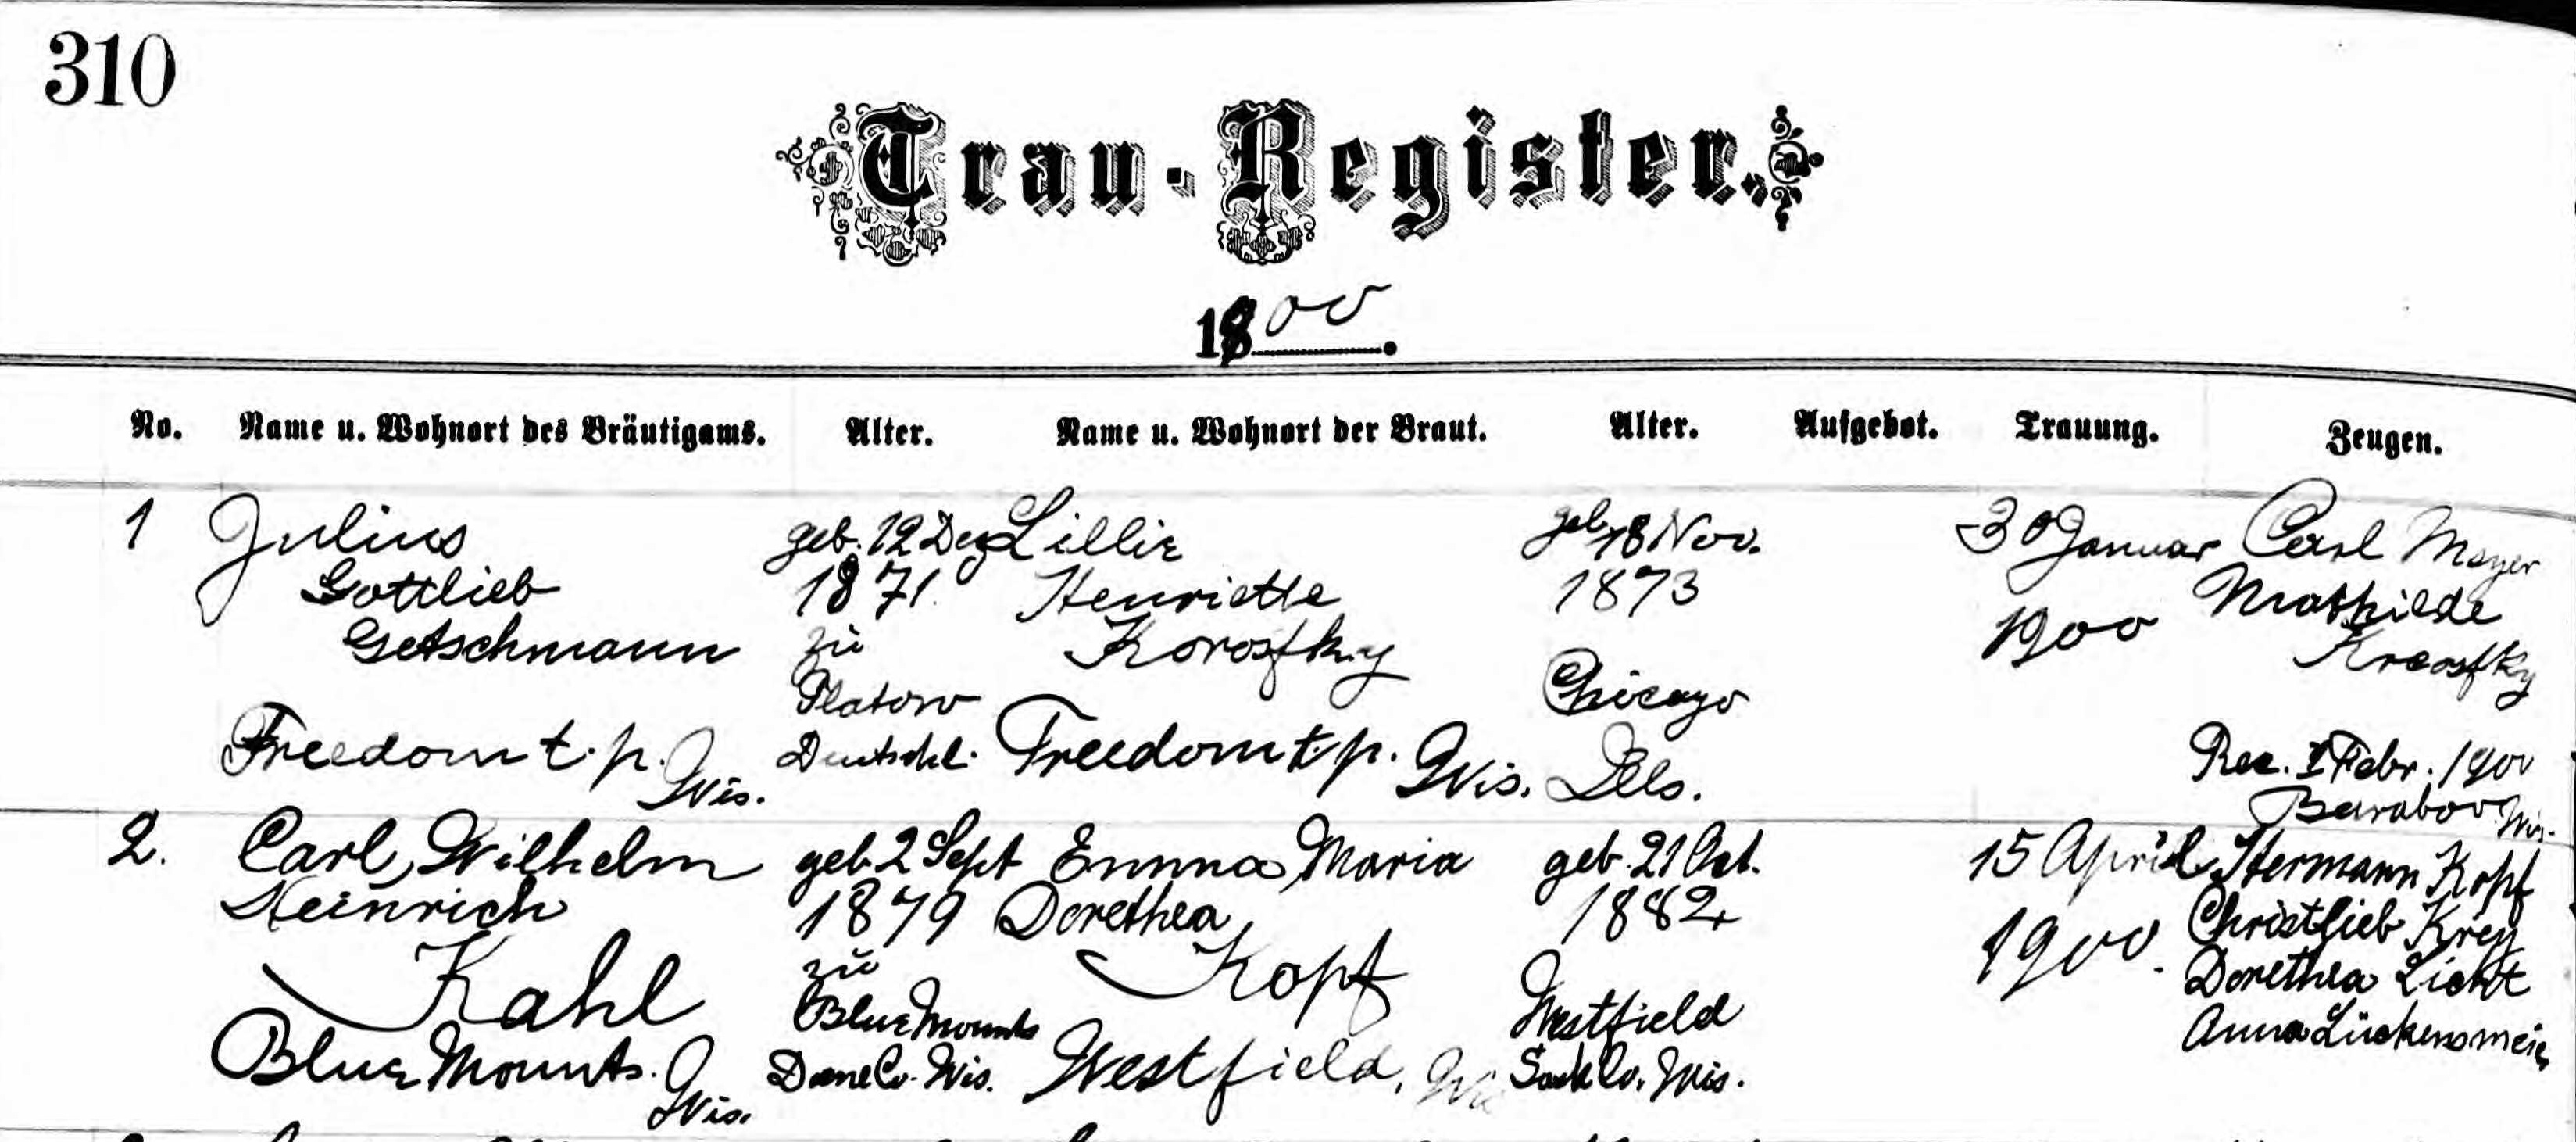 310
Trau-Register.
1900.
No. Name u. Wohnort des Bräutigams. Alter. Name u. Wohnort der Braut. Alter. Aufgebot. Trauung. Zeugen.
1 Julius geb. 12 Dez Lillie geb. 18 Nov. 30 Januar Carl Meyer
Gottlieb 1871. Henriette 1873 1900 Mathilde
Getschmann zu Korosfky
Flatow Chicago
Freedom t.p. Wis. Deutschl. Freedom t.p. Wis. Ills. Rec. 1 Febr. 1900
Baraboo Wis.
2. Carl Wilhelm geb. 2 Sept Emma Maria geb. 21 Oct. 15 April Hermann Kopf
Heinrich 1879 Dorethea 1882 1900. Christlieb
Kahl zu Kopf Dorethea Licht
Blue Mounts Westfield Anna Lückensmeier
Blue Mounts. Wis. Dane Co. Wis. Westfield, Wis Sauk Co. Wis.